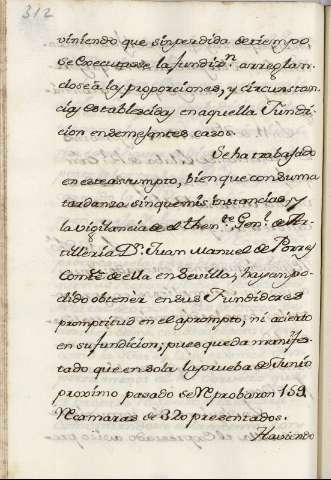 312
viniendo que sin perdida de tiempo
se executase la fundizn. arreglan
dose à las proporciones, y circunstan
cias establecidas en aquella Fundi
cion en semejantes casos.
Se ha trabajado
en este assumpto, bien que con suma
tardanza sin que mis instancias, y
la vigilancia de el Then.te Gen.l de Ar
tilleria D.n Juan Manuel de Porres
Com.te de ella en Sevilla, hayan po
dido obtener en sus Fundidores
promptitud en el apronpto, ni acierto
en su fundicion; pues queda manifes
tado que en sola la prueba de Junio
proximo pasado se Reprobaron 159
Recamaras de 320 presentados.
Haviendo